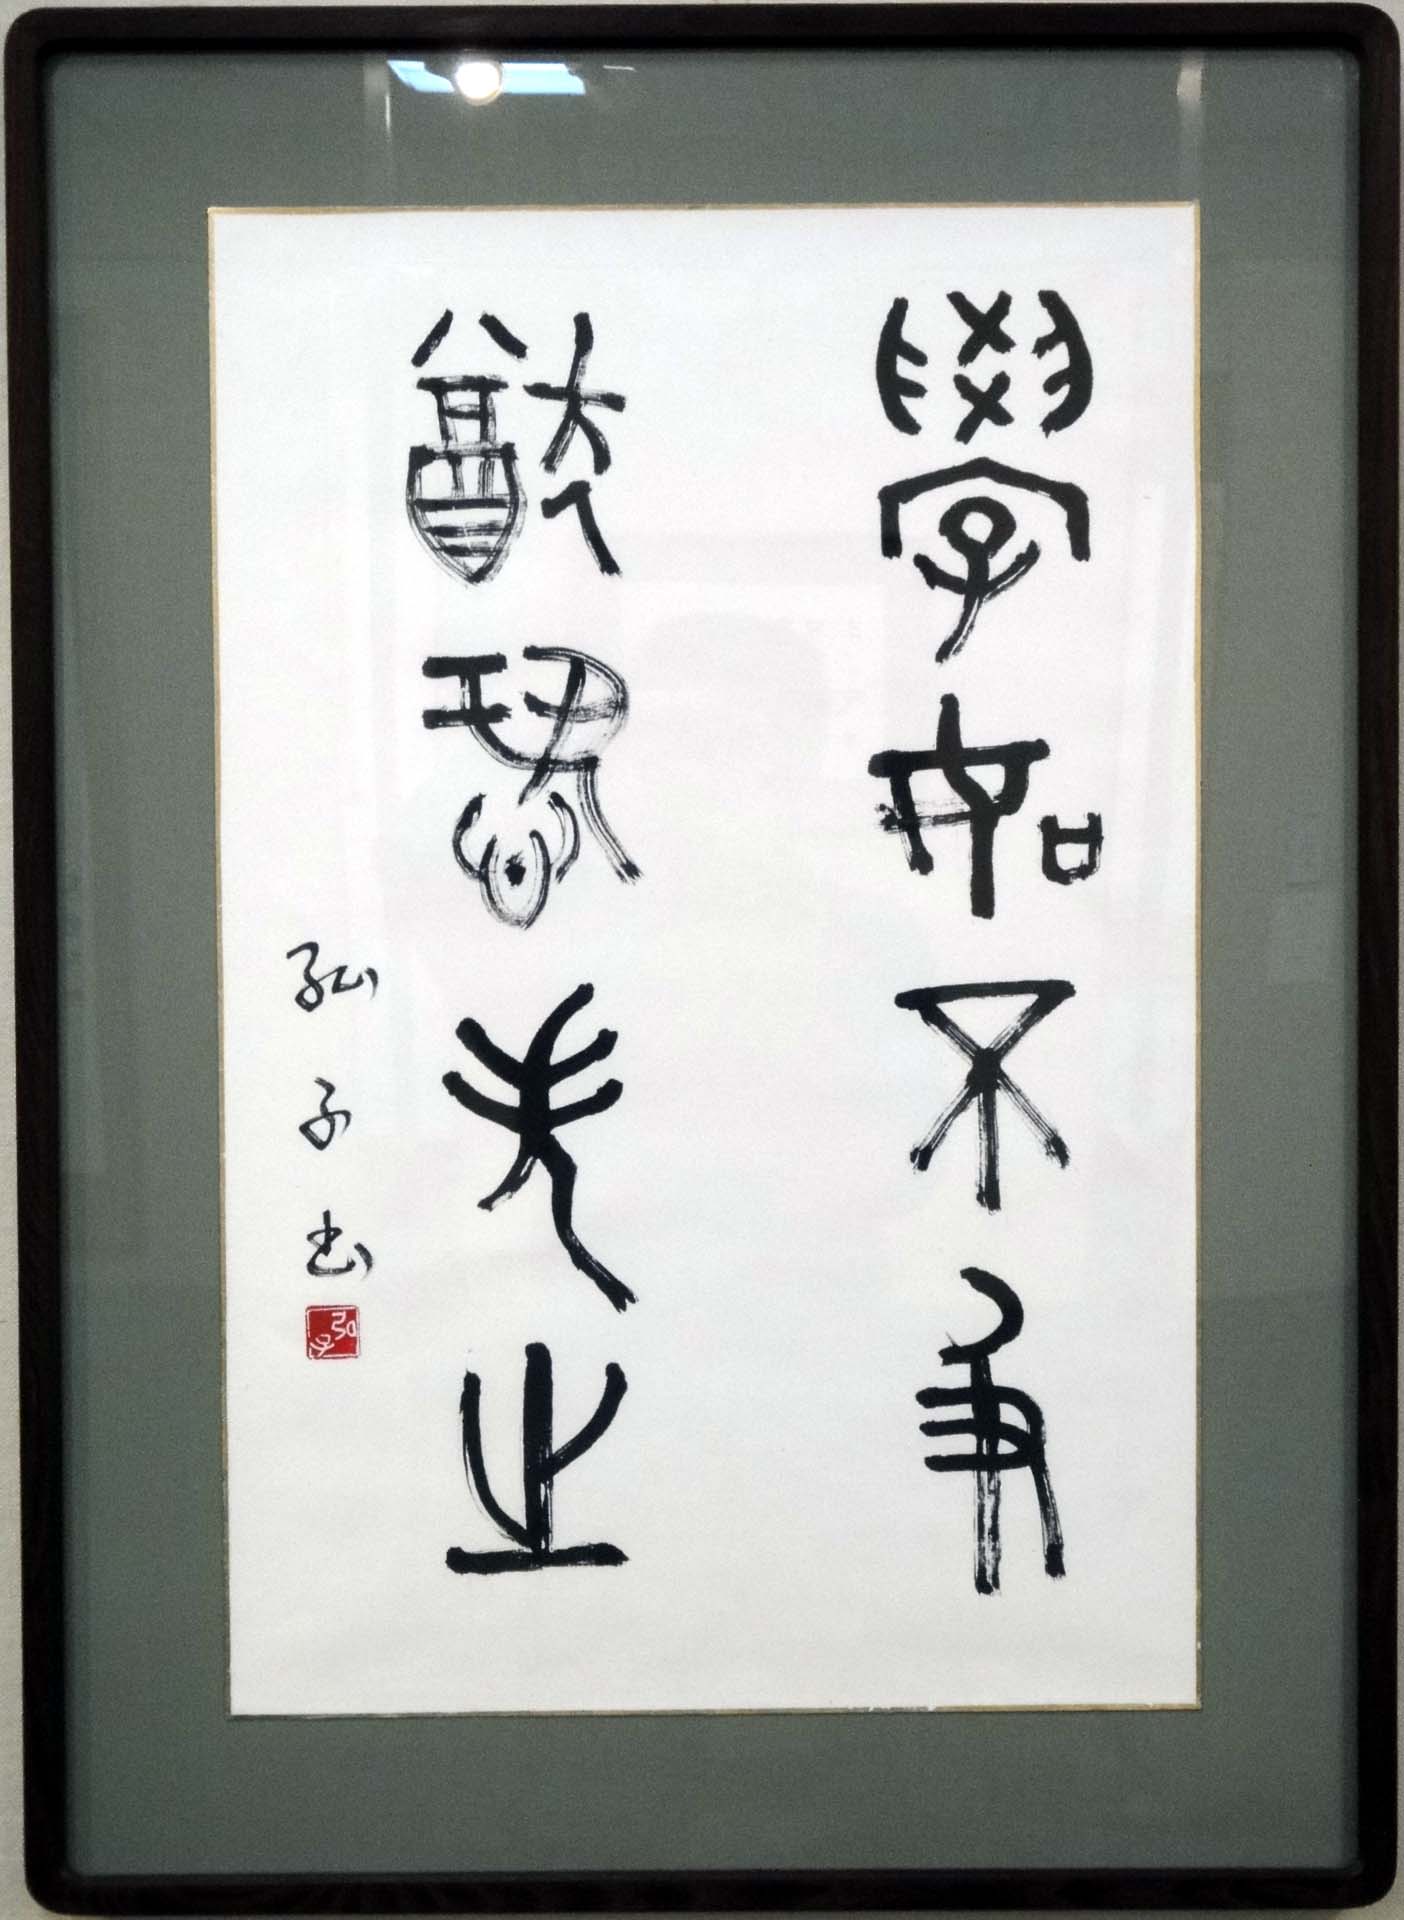 學如不及
猶恐失之
弘子書
弘子